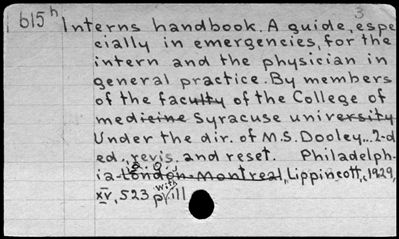 3
b15h Interns handbook. A guide, espe
cially in emergencies, for the
intern and the physician in
general practice. By members
of the faculty of the College of
medicine Syracuse university
Under the dir. of M.S. Dooley... 2-d
ed., revis. and reset. Philadelph-
ia London Montreal, Lippincott, c1929,
xv, 523 p. with ill